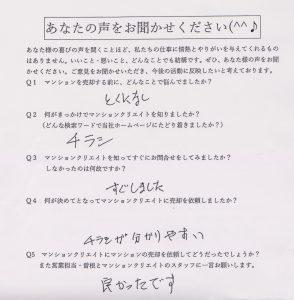 あなたの声をお聞かせください(^^♪
あなた様の喜びの声を聞くことほど、私たちの仕事に情熱とやりがいを与えてくれるもの
はありません。いいこと・悪いこと、どんなことでも結構です。ぜひ、あなた様の声をお聞
かせください。ご意見をお聞かせいただき、今後の活動に反映したいと考えております。
Q1 マンションを売却する前に、どんなことで悩んでましたか?
とくになし
Q2 何がきっかけでマンションクリエイトを知りましたか?
(どんな検索ワードで当社ホームページにたどり着きましたか?)
チラシ
Q3 マンションクリエイトを知ってすぐにお問合せをしてみましたか?
しなかったのは何故ですか?
すぐしました
Q4 何が決め手となってマンションクリエイトに売却を依頼しましたか?
チラシが分かりやすい
Q5 マンションクリエイトにマンションの売却を依頼してどうだったでしょうか?
また営業担当・曽根とマンションクリエイトのスタッフに一言お願いします。
良かったです